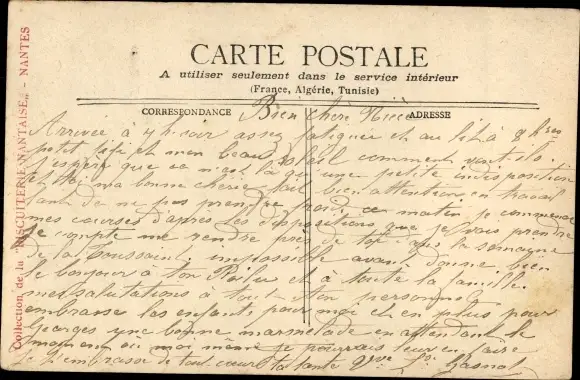 CARTE POSTALE
A utiliser seulement dans le service intérieur
(France, Algérie, Tunisie)
CORRESPONDANCE
ADRESSE
Collection de la "BISCUITERIE NANTAISE" - NANTES
Bien chère Nièce
Arrivée à 4 h. soir assez fatiguée et au lit à 8 h
petit fifi et mon beau comment vont-ils.
J'espère que ce n'est là qu'une petite indisposition
et toi ma bonne chérie fait bien attention en travail
tant de ne pas prendre froid, ce matin je commence
mes courses d'après les dispositions que je vais prendre
je compte me rendre près de toi que la semaine
de la Toussaint, impossible avant donne bien
le bonjour à ton Poilu et à toute la famille.
mes salutations à tout personnel
embrasse les enfants pour moi et en plus pour
Georges une bonne marmelade en attendant le
moment où moi même je pourrais leur en faire
je t'embrasse de tout cœur ta tante Vve